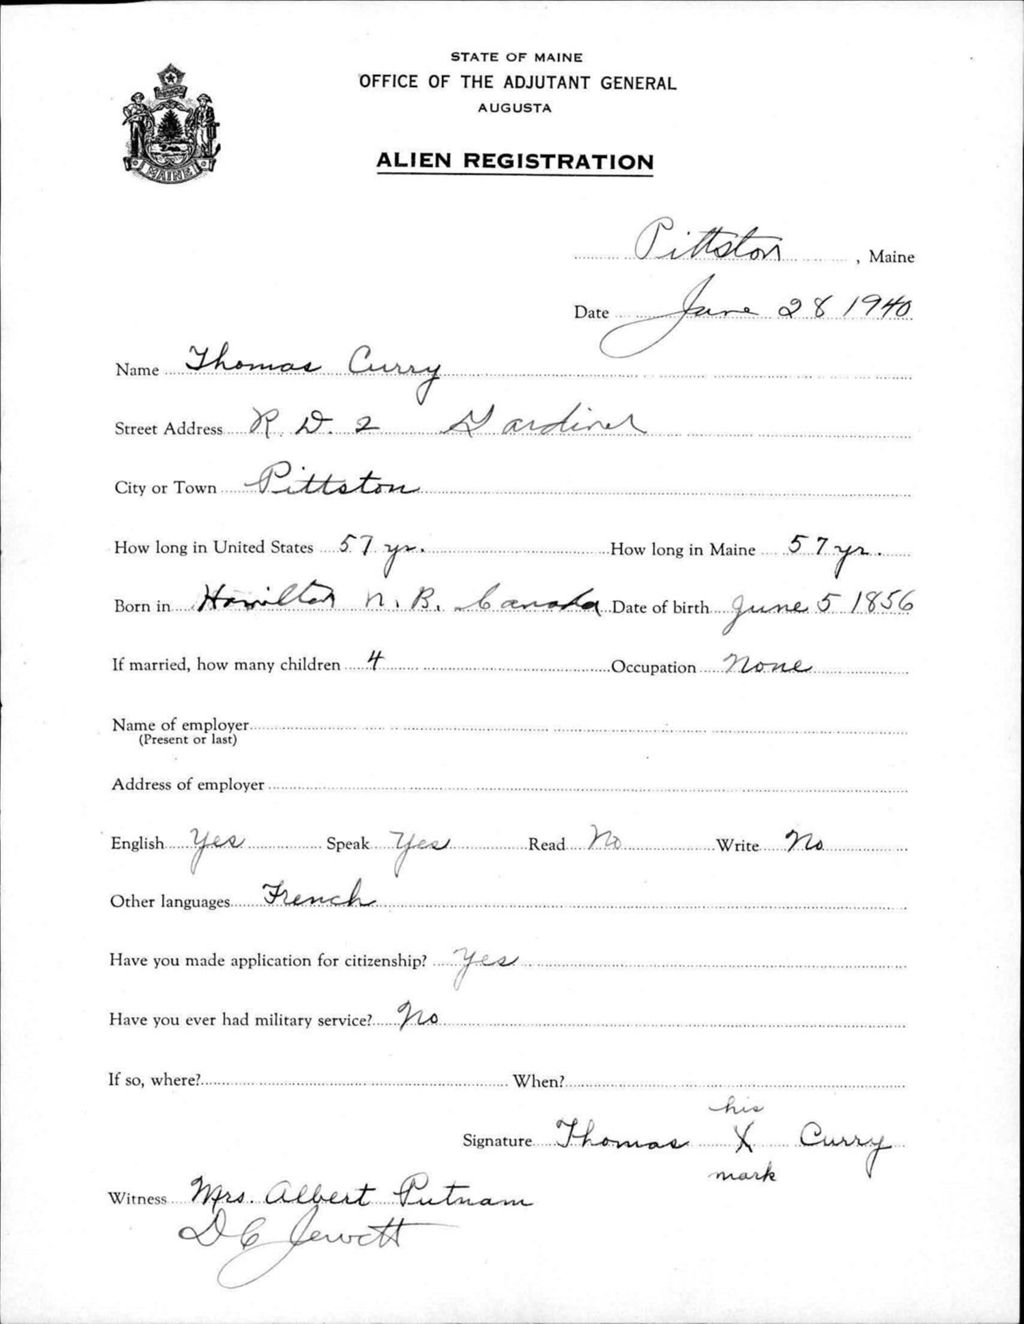 STATE OF MAINE
OFFICE OF THE ADJUTANT GENERAL
AUGUSTA
ALIEN REGISTRATION
MAINE
Pittston, Maine
Date June 28 1940
Name Thomas Curry
Street Address R. D. 2 Gardiner
City or Town Pittston
How long in United States 57 yr. How long in Maine 57 yr.
Born in Hamilton N. B. Canada Date of birth June 5 1856
If married, how many children 4 Occupation None
Name of employer
(Present or last)
Address of employer
English Yes Speak Yes Read No Write No
Other languages French
Have you made application for citizenship? Yes
Have you ever had military service? No
If so, where? When?
his
Signature Thomas X Curry
mark
Witness Mrs. Albert Putnam
D C Jewett